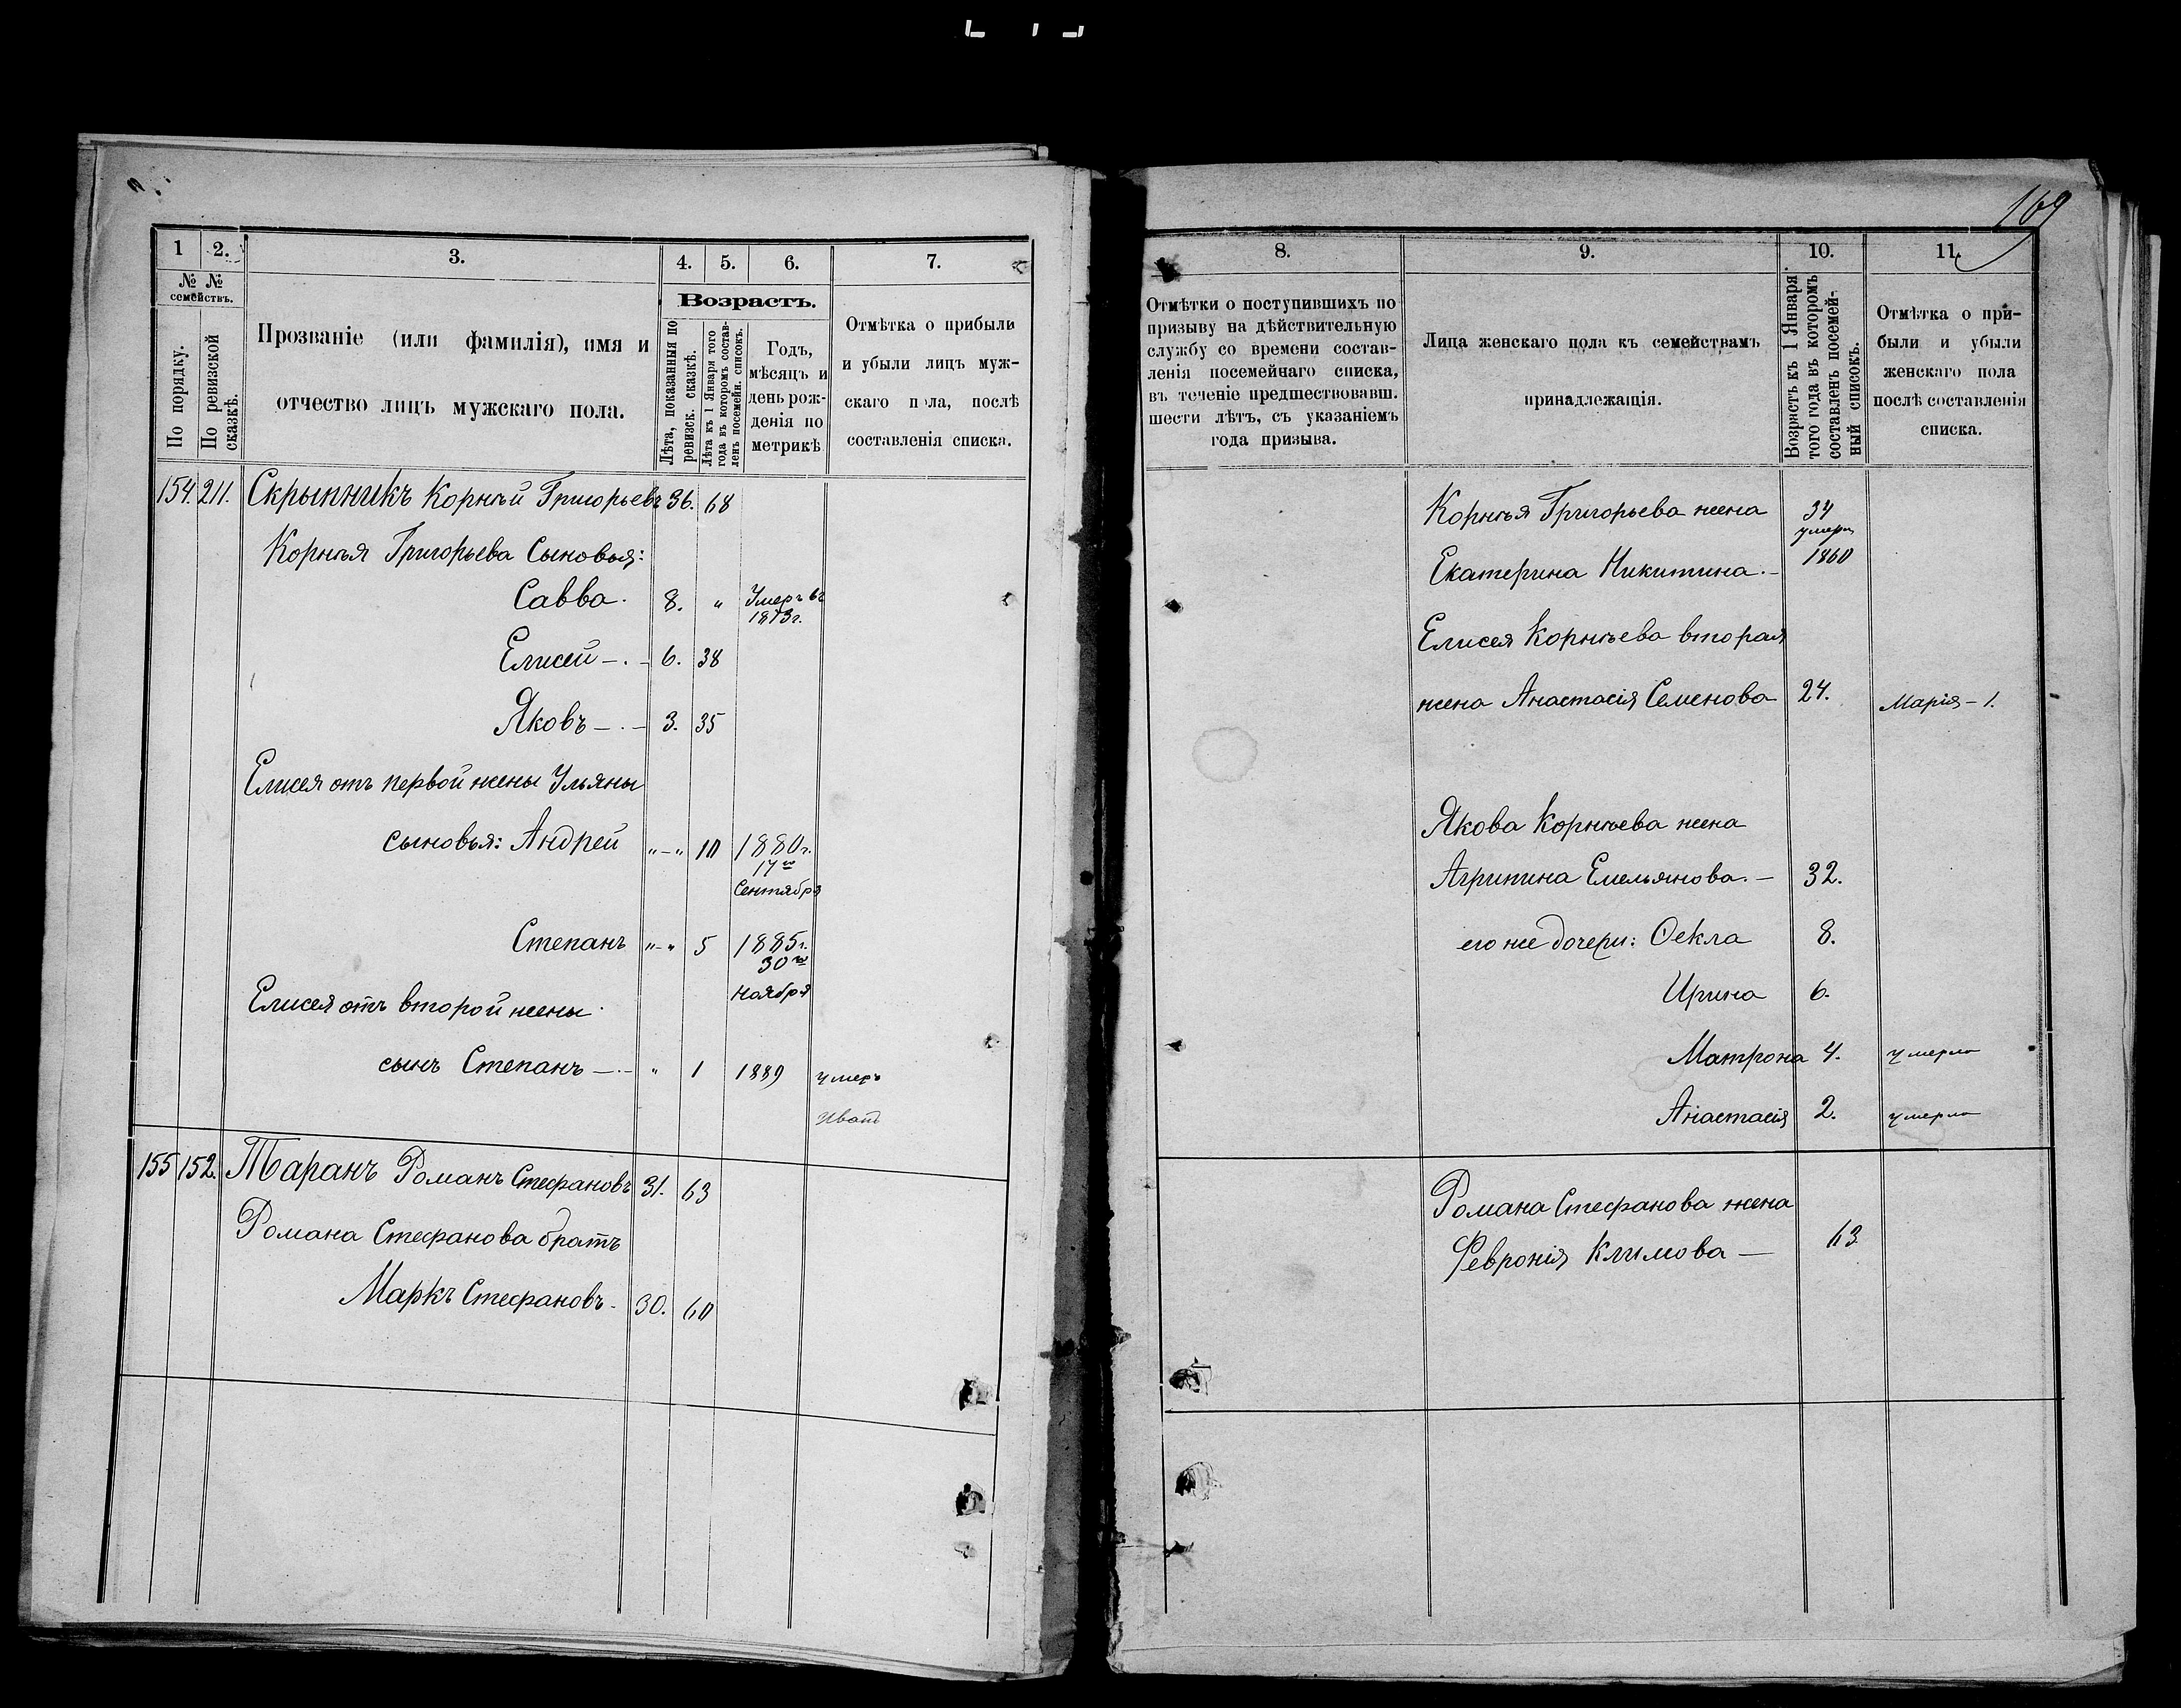 169
1
2.
3.
4.
5.
6.
7.
№ №
семействъ.
По порядку.
По ревизской
сказкѣ.
Прозваніе (или фамилія), имя и
отчество лицъ мужскаго пола.
Возрастъ.
Лѣта, показанныя по
ревизск. сказкѣ.
Лѣта къ 1 Января того
года въ которомъ состав-
ленъ посемейн. списокъ.
Годъ,
мѣсяцъ и
день рож-
денія по
метрикѣ
Отмѣтка о прибыли
и убыли лицъ муж-
скаго пола, послѣ
составленія списка.
154. 211. Скрыпникъ Корнѣй Григорьевъ 36. 68
Корнѣя Григорьева Сыновья:
Савва. 8. „ Умеръ въ
1873 г.
Елисей —.— 6. 38
Яковъ —.— 3. 35
Елисея отъ первой жены Ульяны
сыновья: Андрей „—„ 10 1880 г.
17го
Сентября
Степанъ „—„ 5 1885 г.
30го
Ноября
Елисея отъ второй жены
сынъ Степанъ —.— „ 1 1889 умеръ
Иванъ
155 152. Таранъ Романъ Стефановъ 31. 63
Романа Стефанова братъ
Маркъ Стефановъ. 30. 60
8.
9.
10.
11.
Отмѣтки о поступившихъ по
призыву на дѣйствительную
службу со времени состав-
ленія посемейнаго списка,
въ теченіе предшествовавш.
шести лѣтъ, съ указаніемъ
года призыва.
Лица женскаго пола къ семействамъ
принадлежащія.
Возрастъ къ 1 Января
того года въ которомъ
составленъ посемей-
ный списокъ.
Отмѣтка о при-
были и убыли
женскаго пола
послѣ составленія
списка.
Корнѣя Григорьева жена 34
умерла
Екатерина Никитина.— 1860
Елисея Корнѣева вторая
жена Анастасія Семенова 24. Марія — 1.
Якова Корнѣева жена
Агрипина Емельянова.— 32.
его же дочери: Ѳекла 8.
Ирина 6.
Матрона 4. умерла
Анастасія 2. умерла
Романа Стефанова жена
Февронія Климова — 63